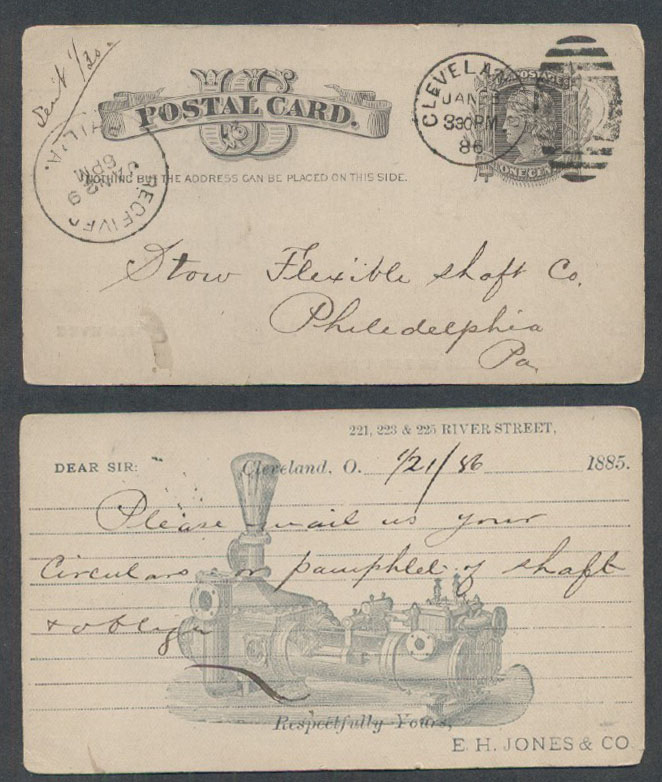 Sent 1/30.
U S
POSTAL CARD.
NOTHING BUT THE ADDRESS CAN BE PLACED ON THIS SIDE.
CLEVELAN
JAN
330PM
86
U.S. POSTAGE
ONE CENT
RECEIVED
JAN 29
6 PM
PHILA.
Stow Flexible Shaft Co.
Philedelphia
Pa.
221, 223 & 225 RIVER STREET,
DEAR SIR: Cleveland, O. 1/21/86 1885.
Please mail us your
Circulars or pamphlet of shaft
& oblige
Respectfully Yours,
E. H. JONES & CO.